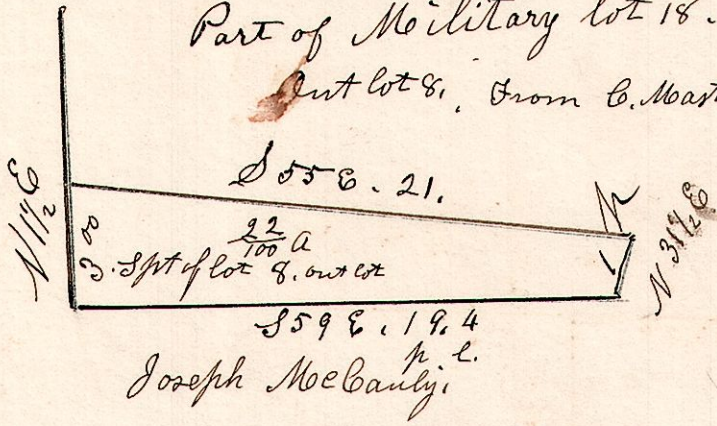 Part of Military lot 18.
Out lot 8. From C. Mast
S 55 E. 21.
22/100 A
3.00
S pt of lot 8. out lot
N 1 1/2 E
N 31 1/2 E
S 59 E. 19.4
p l.
Joseph McCauly.